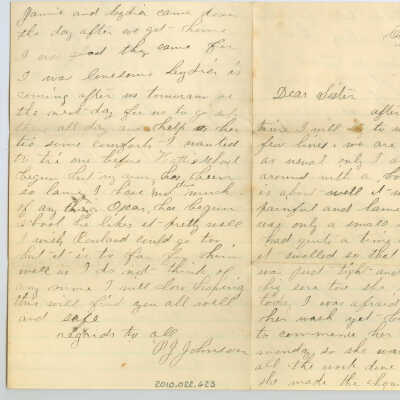 Dear Sister
after
time I will to w
few lines. we are
as usual only I a
around with a bo
is about well it w
painful and lame
use only a small
had quite a time
it swelled so that
was just tight and
big sore too she
took, I was afraid
her wash yet do
to commence her
monday so she wa
all the work done
she made the
Jamie and Lydia came down
the day after we got home
I was glad they came for
I was lonesome Lydia is
coming after us tomorrow or
the next day for us to go and
stay all day and help her
tie some comforts I wanted
to tie one before
begun but my arm has been
so lame I have not much
of any Oscar has begun
school he likes it pretty well
I wish Rowland could go too
but it is to far for him
well as I do not think of
any more I will close hoping
this will find you all well
and safe
regards to all
Johnson
2010.022.623